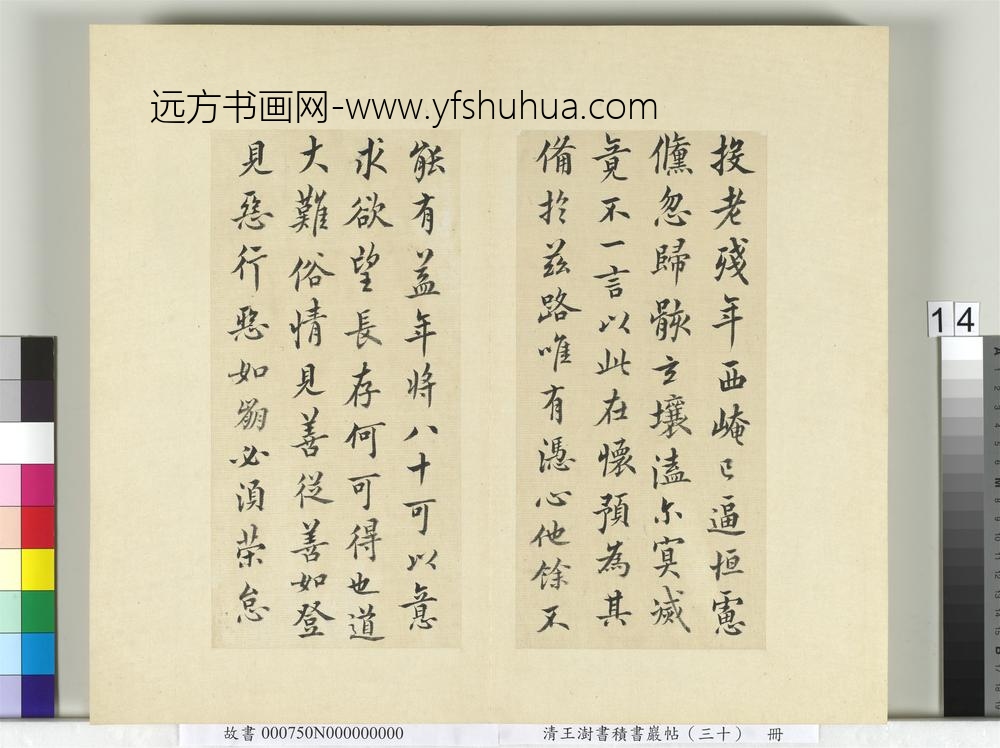 远方书画网-www.yfshuhua.com
投老殘年西崦已逼恒慮
儻忽歸骸玄壤溘尒冥滅
竟不一言以此在懷預為其
備於茲路唯有憑心他餘不
能有益年將八十可以意
求欲望長存何可得也道
大難俗情見善從善如登
見惡行惡如崩必須榮怠
14
故書 000750N000000000
清王澍書積書巖帖(三十) 冊